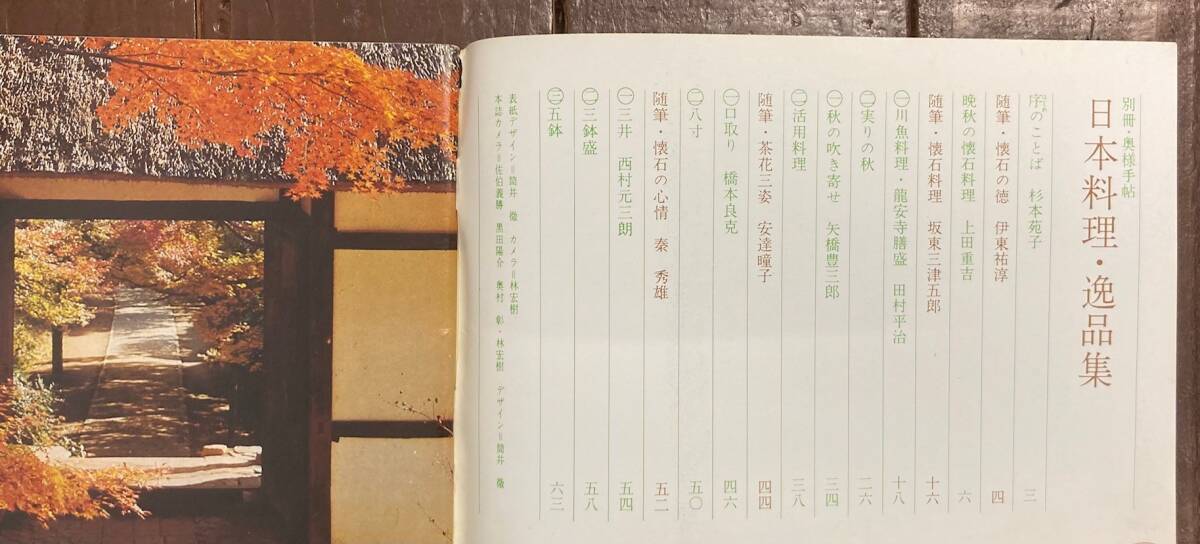 別冊・奥様手帖
日本料理・逸品集
序のことば 杉本苑子 三
随筆・懐石の徳 伊東祐淳 四
晩秋の懐石料理 上田重吉 六
随筆・懐石料理 坂東三津五郎 十六
㊀川魚料理・龍安寺膳盛 田村平治 十八
㊁実りの秋 二六
㊀秋の吹き寄せ 矢橋豊三郎 三四
㊁活用料理 三八
随筆・茶花三姿 安達瞳子 四四
㊀口取り 橋本良克 四六
㊁八寸 五〇
随筆・懐石の心情 秦 秀雄 五二
㊀三井 西村元三朗 五四
㊁三鉢盛 五八
㊂五鉢 六三
表紙デザイン＝筒井 徹 カメラ＝林宏樹
本誌カメラ＝佐伯義勝 黒田陽介 奥村 彰・林宏樹 デザイン＝筒井 徹